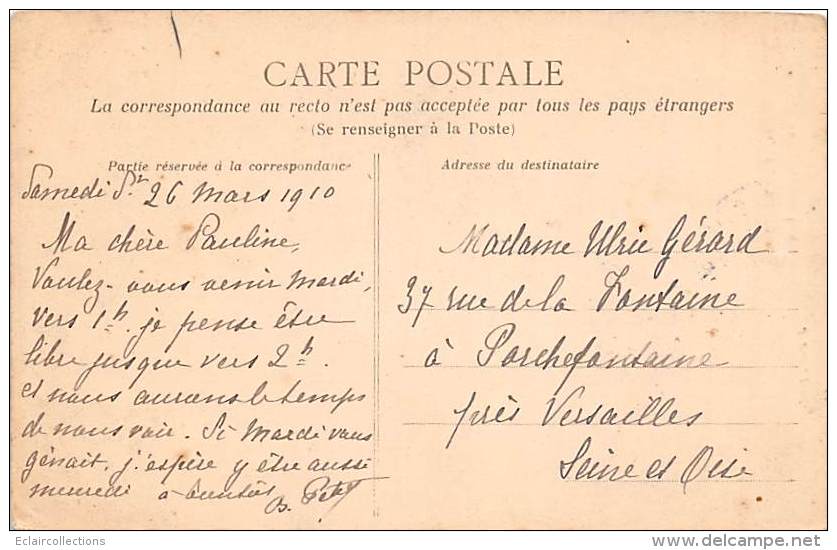 CARTE POSTALE
La correspondance au recto n'est pas acceptée par tous les pays étrangers
(Se renseigner à la Poste)
Partie réservée à la correspondance
Adresse du destinataire
Samedi St 26 mars 1910
Ma chère Pauline,
Voulez-vous venir mardi,
vers 1h. je pense être
libre jusque vers 2h.
et nous aurons le temps
de nous voir. Si Mardi vous
gênait, j'espère y être aussi
mercredi à bientôt
B. Petit
Madame Ulric Gérard
37 rue de la Fontaine
à Porchefontaine
près Versailles
Seine et Oise
Eclaircollections
www.delcampe.net